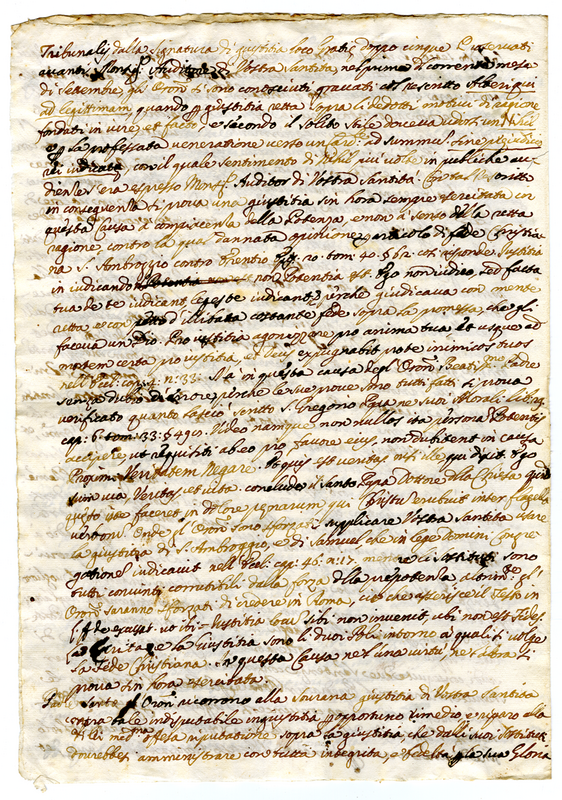 Tribunali dalla Signatura di giustitia loco Gratis doppo cinque
avanti Auditore di Vostra Santità nel primo di corrente mese
di Settembre, gl'Oron si sono conosciuti gravati col rescritto Alteri qui
ad legittimam, quando p giustitia retta sopra li dedotti motivi di ragione
fondati in iure, et facto, e secondo il solito stile doveva un Nihil
p la professata veneratione verso un ad summum sine preiudicio
rei iudicate, con il quale sentimento di Nihil più volte in publiche au-
dienze s'era espresso Auditor di Vostra Santità.
in consequenza si prova una giustitia sin hora sempre esercitata in
questa Causa à compiacenza della Potenza, e non à senso della retta
ragione contro la qual dannata opinione articolo di fede Christia
na S. Ambroggio contro tom. risponde Iustitia
in iudicando non Potentia est. Ego non iudico, sed facta
tua de te iudicant perche giudicava con mente
retta, e con illibata costante fede sopra la promessa, che gl
faceva un Dio. Pro iustitia agonizare pro anima tua et usque ad
mortem certa pro iustitia, et Deus expugnabit pro te inimicos tuos
nell' Eccl. cap. 4. n. 33. Mà in questa causa degl' Oron Beatiss.mo Padre
senza dubio di errore, perche le sue prove sono tutti fatti si prova
verificato quanto lasciò scritto S. Gregorio Papa ne suoi Morali
cap. 6. tom. Video namque non nullos ita Potentis
accipere, ut requisiti ab eo pro favore eius, non dubitent in causa
Proximi Veritatem Negare. Et quis est veritas nisi ille qui dixit Ego
sum via Veritas et vita. conclude il Santo Papa Dottore della Chiesa quid
isto iste faceret in dolore penarum qui Christu erubuit inter flagella
verborum. Onde gl' Oron sono sforzati supplicare Vostra Santità usare
la giustitia di S. Ambroggio, e di Samuel, che in lege Domini Congre
gationem iudicavit nell' Eccl. cap. 46. n. 17. mentre li sostituti sono
tutti convinti corrutibili dalla forza della prepotenza, gl'
Oron saranno sforzati di credere in Roma, ciò che asserisce il Testo in
ubi Iustitia locu sibi non invenit, ubi non est fides.
La Verità, e la Giustitia sono li duoi Poli intorno à quali si volge
la Fede Christiana. in questa Causa ne l'una virtù, ne l'altra si
prova sin hora esercitata.
gl' Oron ricorrono alla Sourana giustitia di Vostra Santità
contra tale indisputabile ingiustitia p opportuno rimedio, e riparo alla
di Lei med.ma offesa riputatione sopra la giustitia, che dalli suoi sostituti
dovrebbesi amministrare con tutta integrità, e fedeltà p la sua Gloria